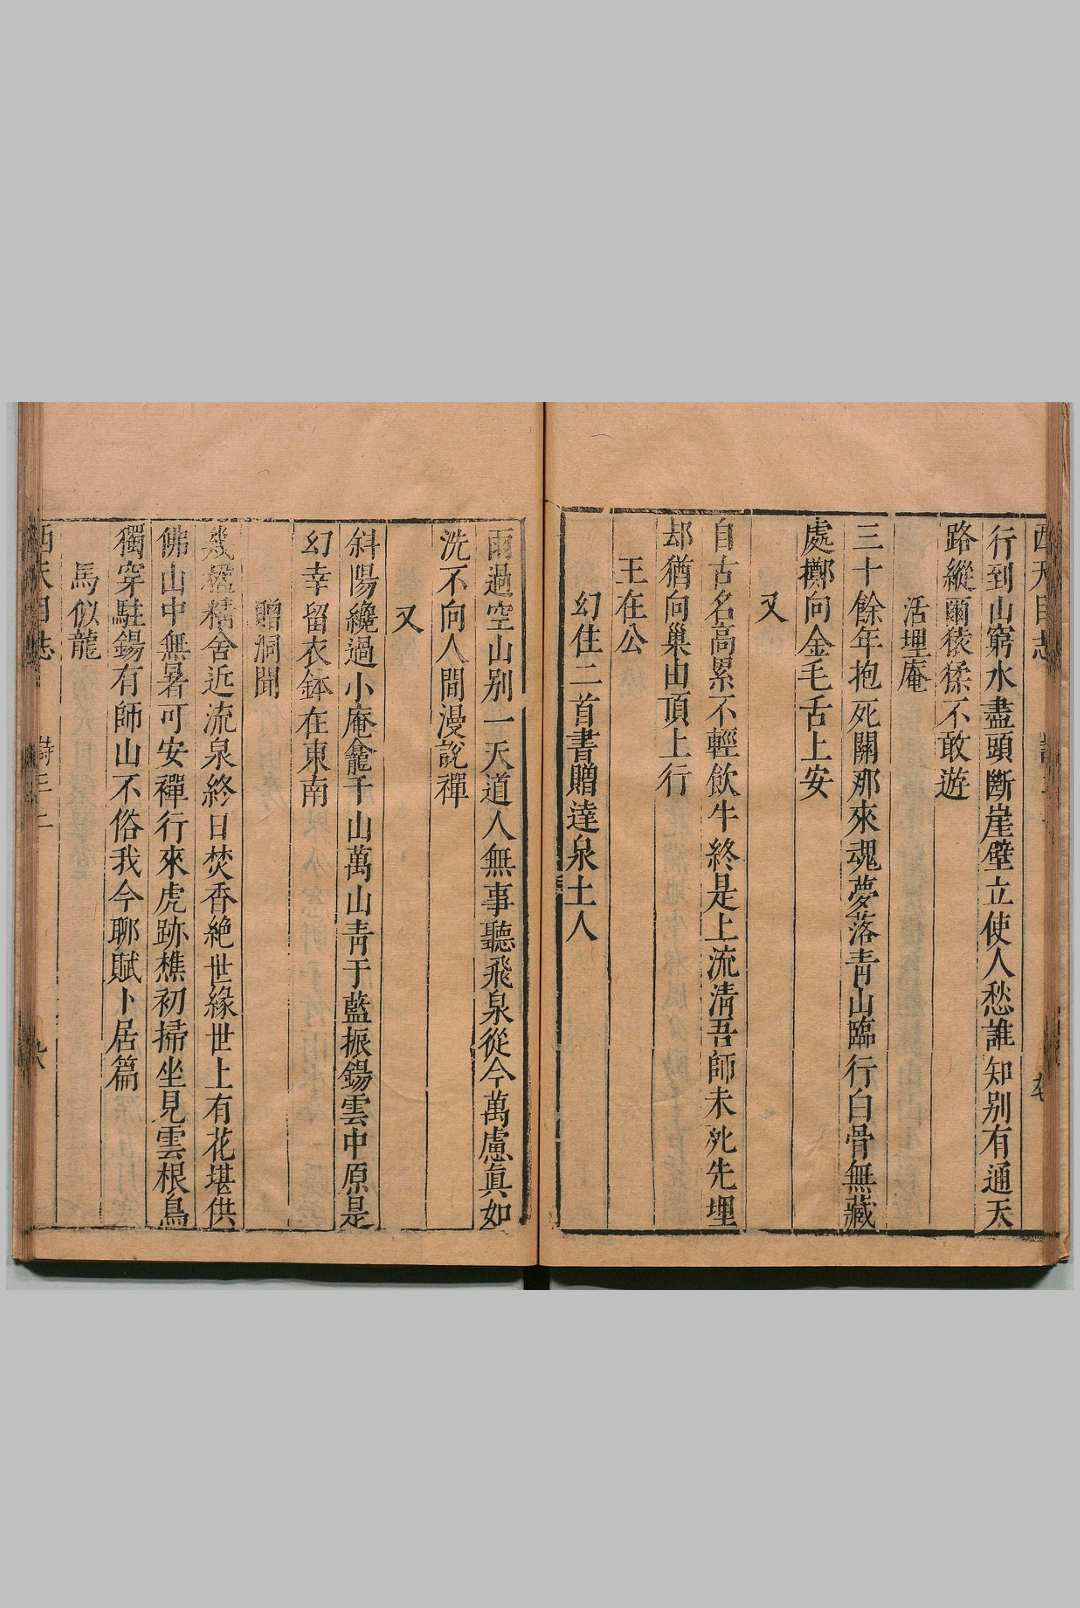 西天目志
行到山窮水盡頭斷崖壁立使人愁誰知别有通天
路縱爾猿猱不敢遊
活埋庵
三十餘年抱死關那來魂夢落青山臨行白骨無藏
處擲向金毛舌上安
又
自古名高累不輕飲牛終是上流清吾師未死先埋
却猶向巢由頂上行
王在公
幻住二首書贈達泉土人
雨過空山别一天道人無事聽飛泉從今萬慮真如
洗不向人間漫說禪
又
斜陽纔過小庵龕千山萬山青于藍振錫雲中原是
幻幸留衣鉢在東南
贈洞聞
幾楹精舍近流泉終日焚香絶世緣世上有花堪供
佛山中無暑可安禪行來虎跡樵初掃坐見雲根鳥
獨穿駐錫有師山不俗我今聊賦卜居篇
馬似龍
西天目志
詩三 二